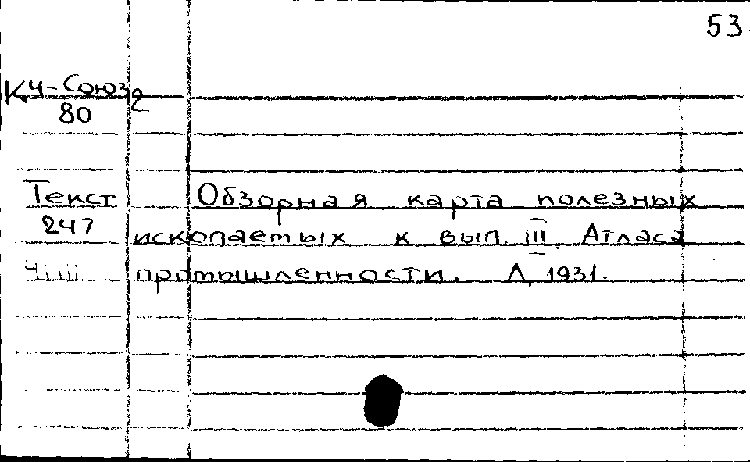 53
К4-Союз 2
80
Текст
247
Обзорная карта полезных
ископаемых к вып. III Атласа
промышленности. Л, 1931.